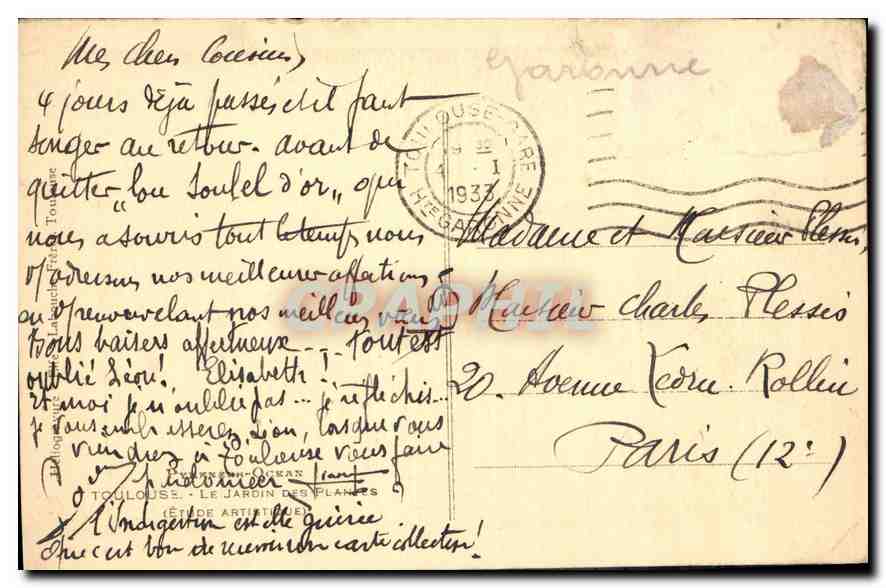 Mes chers Cousins,
4 jours déjà passés et il faut
songer au retour. avant de
quitter "lou Soulel d'or" qui
nous a souris tout le temps nous
v/ adressons nos meilleures affections
en v/ renouvelant nos meilleurs vœux
bons baisers affectueux -- tout est
oublié Léon!. Elisabeth!
Et moi je n'oublie pas ... je réfléchis...
je vous embrasserai Léon, lorsque vous
viendrez à Toulouse vous faire
pardonner
Pyrénées-Océan
TOULOUSE. - LE JARDIN DES PLANTES
(ÉTUDE ARTISTIQUE)
L'indigestion est elle guérie
Que c'est bon de recevoir une carte collection!
Héliogravure Labouche Frères Toulouse
Garonne
TOULOUSE-GARE
I
1933
Hte GARONNE
Madame et Monsieur Plessis,
Monsieur Charles Plessis
20. Avenue Ledru. Rollin
Paris (12e)
CPAPHIL